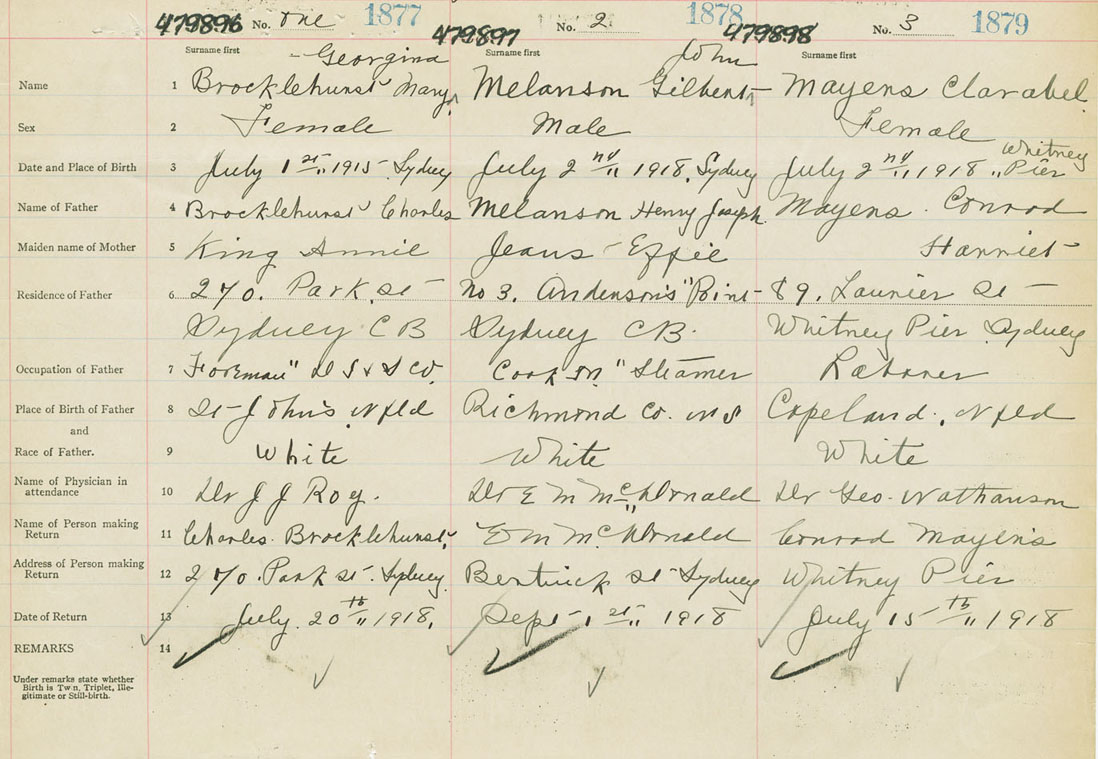 479896 No. One 1877 479897 No. 2 1878 479898 No. 3 1879
Surname first Georgina Surname first John Surname first
Name 1 Brocklehurst Mary Melanson Gilbert Mayens Clarabel
Sex 2 Female Male Female
Date and Place of Birth 3 July 1st 1915 Sydney July 2nd 1918, Sydney July 2nd 1918 Whitney Pier
Name of Father 4 Brocklehurst Charles Melanson Henry Joseph Mayens. Conrad
Maiden name of Mother 5 King Annie Jeans Effie Harriet
Residence of Father 6 270. Park St No 3. Anderson's Point 89, Laurier St
Sydney C B Sydney CB. Whitney Pier Sydney
Occupation of Father 7 "Foreman" D I & S Co. Cook on "Steamer Laborer
Place of Birth of Father 8 St John's, Nfld Richmond Co. N S Copeland, Nfld
and
Race of Father. 9 White White White
Name of Physician in attendance 10 Dr J J Roy. Dr E M McDonald Dr Geo. Nathanson
Name of Person making Return 11 Charles Brocklehurst, E M McDonald Conrad Mayens
Address of Person making Return 12 270. Park St. Sydney Bentinck St Sydney Whitney Pier
Date of Return 13 July 20th 1918, Sept 1st 1918 July 15th 1918
REMARKS 14
Under remarks state whether
Birth is Twin, Triplet, Ille-
gitimate or Still-birth.